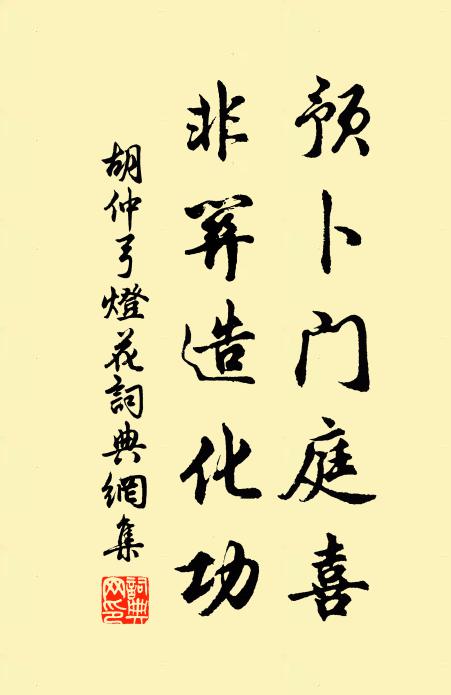 预卜门庭喜
非关造化功
胡仲弓燈花詞典網集
詞典网印